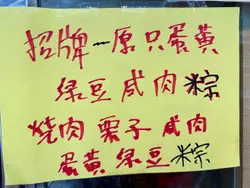 招牌一原只蛋黃
绿豆咸肉粽
烧肉栗子咸肉
蛋黃绿豆粽